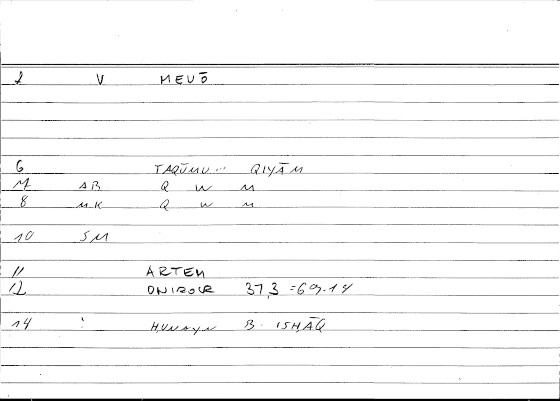 2 V MEVŌ
6 TAQŪMU... QIYĀM
M AB Q W M
8 MK Q W M
10 SM
11 ARTEM
12 ONIROCR 37,3 = 69.14
14 : ḤUNAYN B. ISḤĀQ